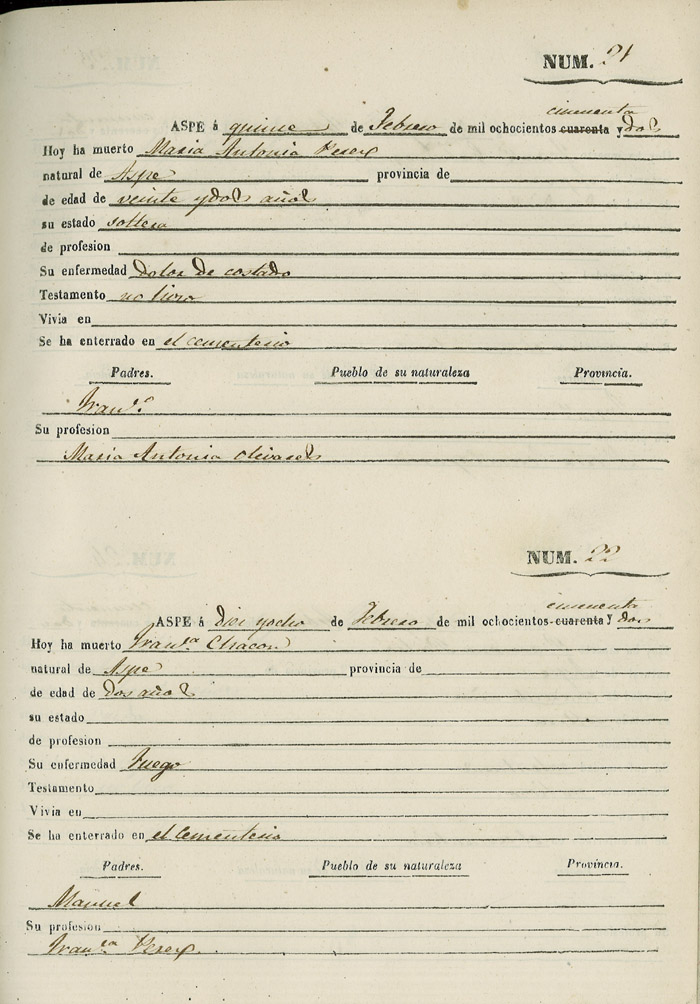 NUM. 21
cincuenta
ASPE á quince de Febrero de mil ochocientos cuarenta y dos
Hoy ha muerto Maria Antonia Perez
natural de Aspe provincia de
de edad de veinte y dos años
su estado soltera
de profesion
Su enfermedad dolor de costado
Testamento no hizo
Vivia en
Se ha enterrado en el cementerio
Padres. Pueblo de su naturaleza Provincia.
Franco.
Su profesion
Maria Antonia Olivares
NUM. 22
cincuenta
ASPE á diez y ocho de Febrero de mil ochocientos cuarenta y dos
Hoy ha muerto Franca Chacon
natural de Aspe provincia de
de edad de dos años
su estado
de profesion
Su enfermedad Fuego
Testamento
Vivia en
Se ha enterrado en el Cementerio
Padres. Pueblo de su naturaleza Provincia.
Manuel
Su profesion
Franca Perez